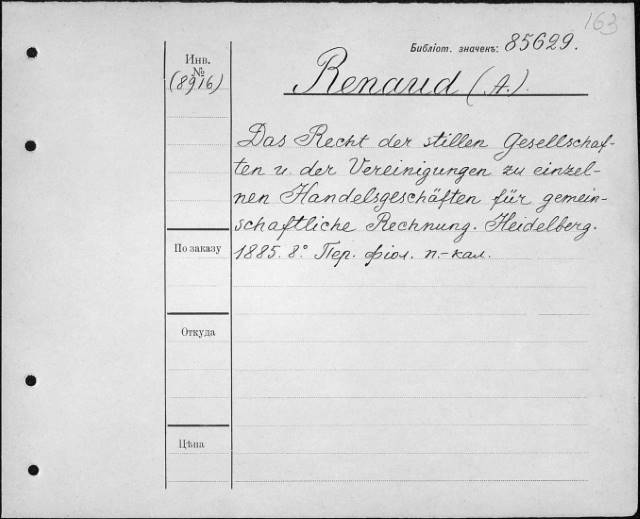 163
Библіот. значекъ: 85629.
Инв.
№
(8916)
Renaud (A.).
Das Recht der stillen Gesellschaf-
ten u. der Vereinigungen zu einzel-
nen Handelsgeschäften für gemein-
schaftliche Rechnung. Heidelberg.
1885. 8.° Пер. фіол. п.-кал.
По заказу
Откуда
Цѣна